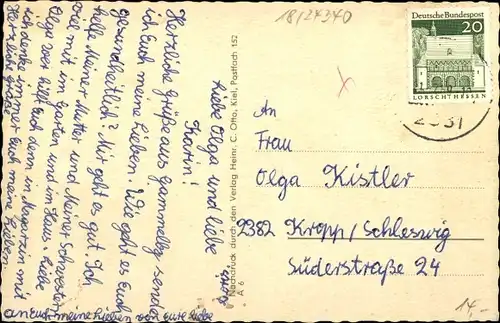 18/24340
Deutsche Bundespost
20
LORSCH/HESSEN
2331
An
Frau
Olga Kistler
2382 Kropp/Schleswig
Süderstraße 24
14,-
Neandruck durch den Verlag Heinr. C. Otto, Kiel, Postfach 152
A 6
Liebe Olga und liebe
Karin!
Herzliche Grüße aus Gammelby sende
ich Euch meine Lieben. Wie geht es Euch
gesundheitlich? Mir geht es gut. Ich
helfe meiner Mutter und meiner Schwester
viel mit im Garten und im Haus. Liebe
Olga wer hilft Euch denn in
ich denke immer an Euch meine Lieben.
Herzliche Grüße
an Euch meine Lieben von eure liebe